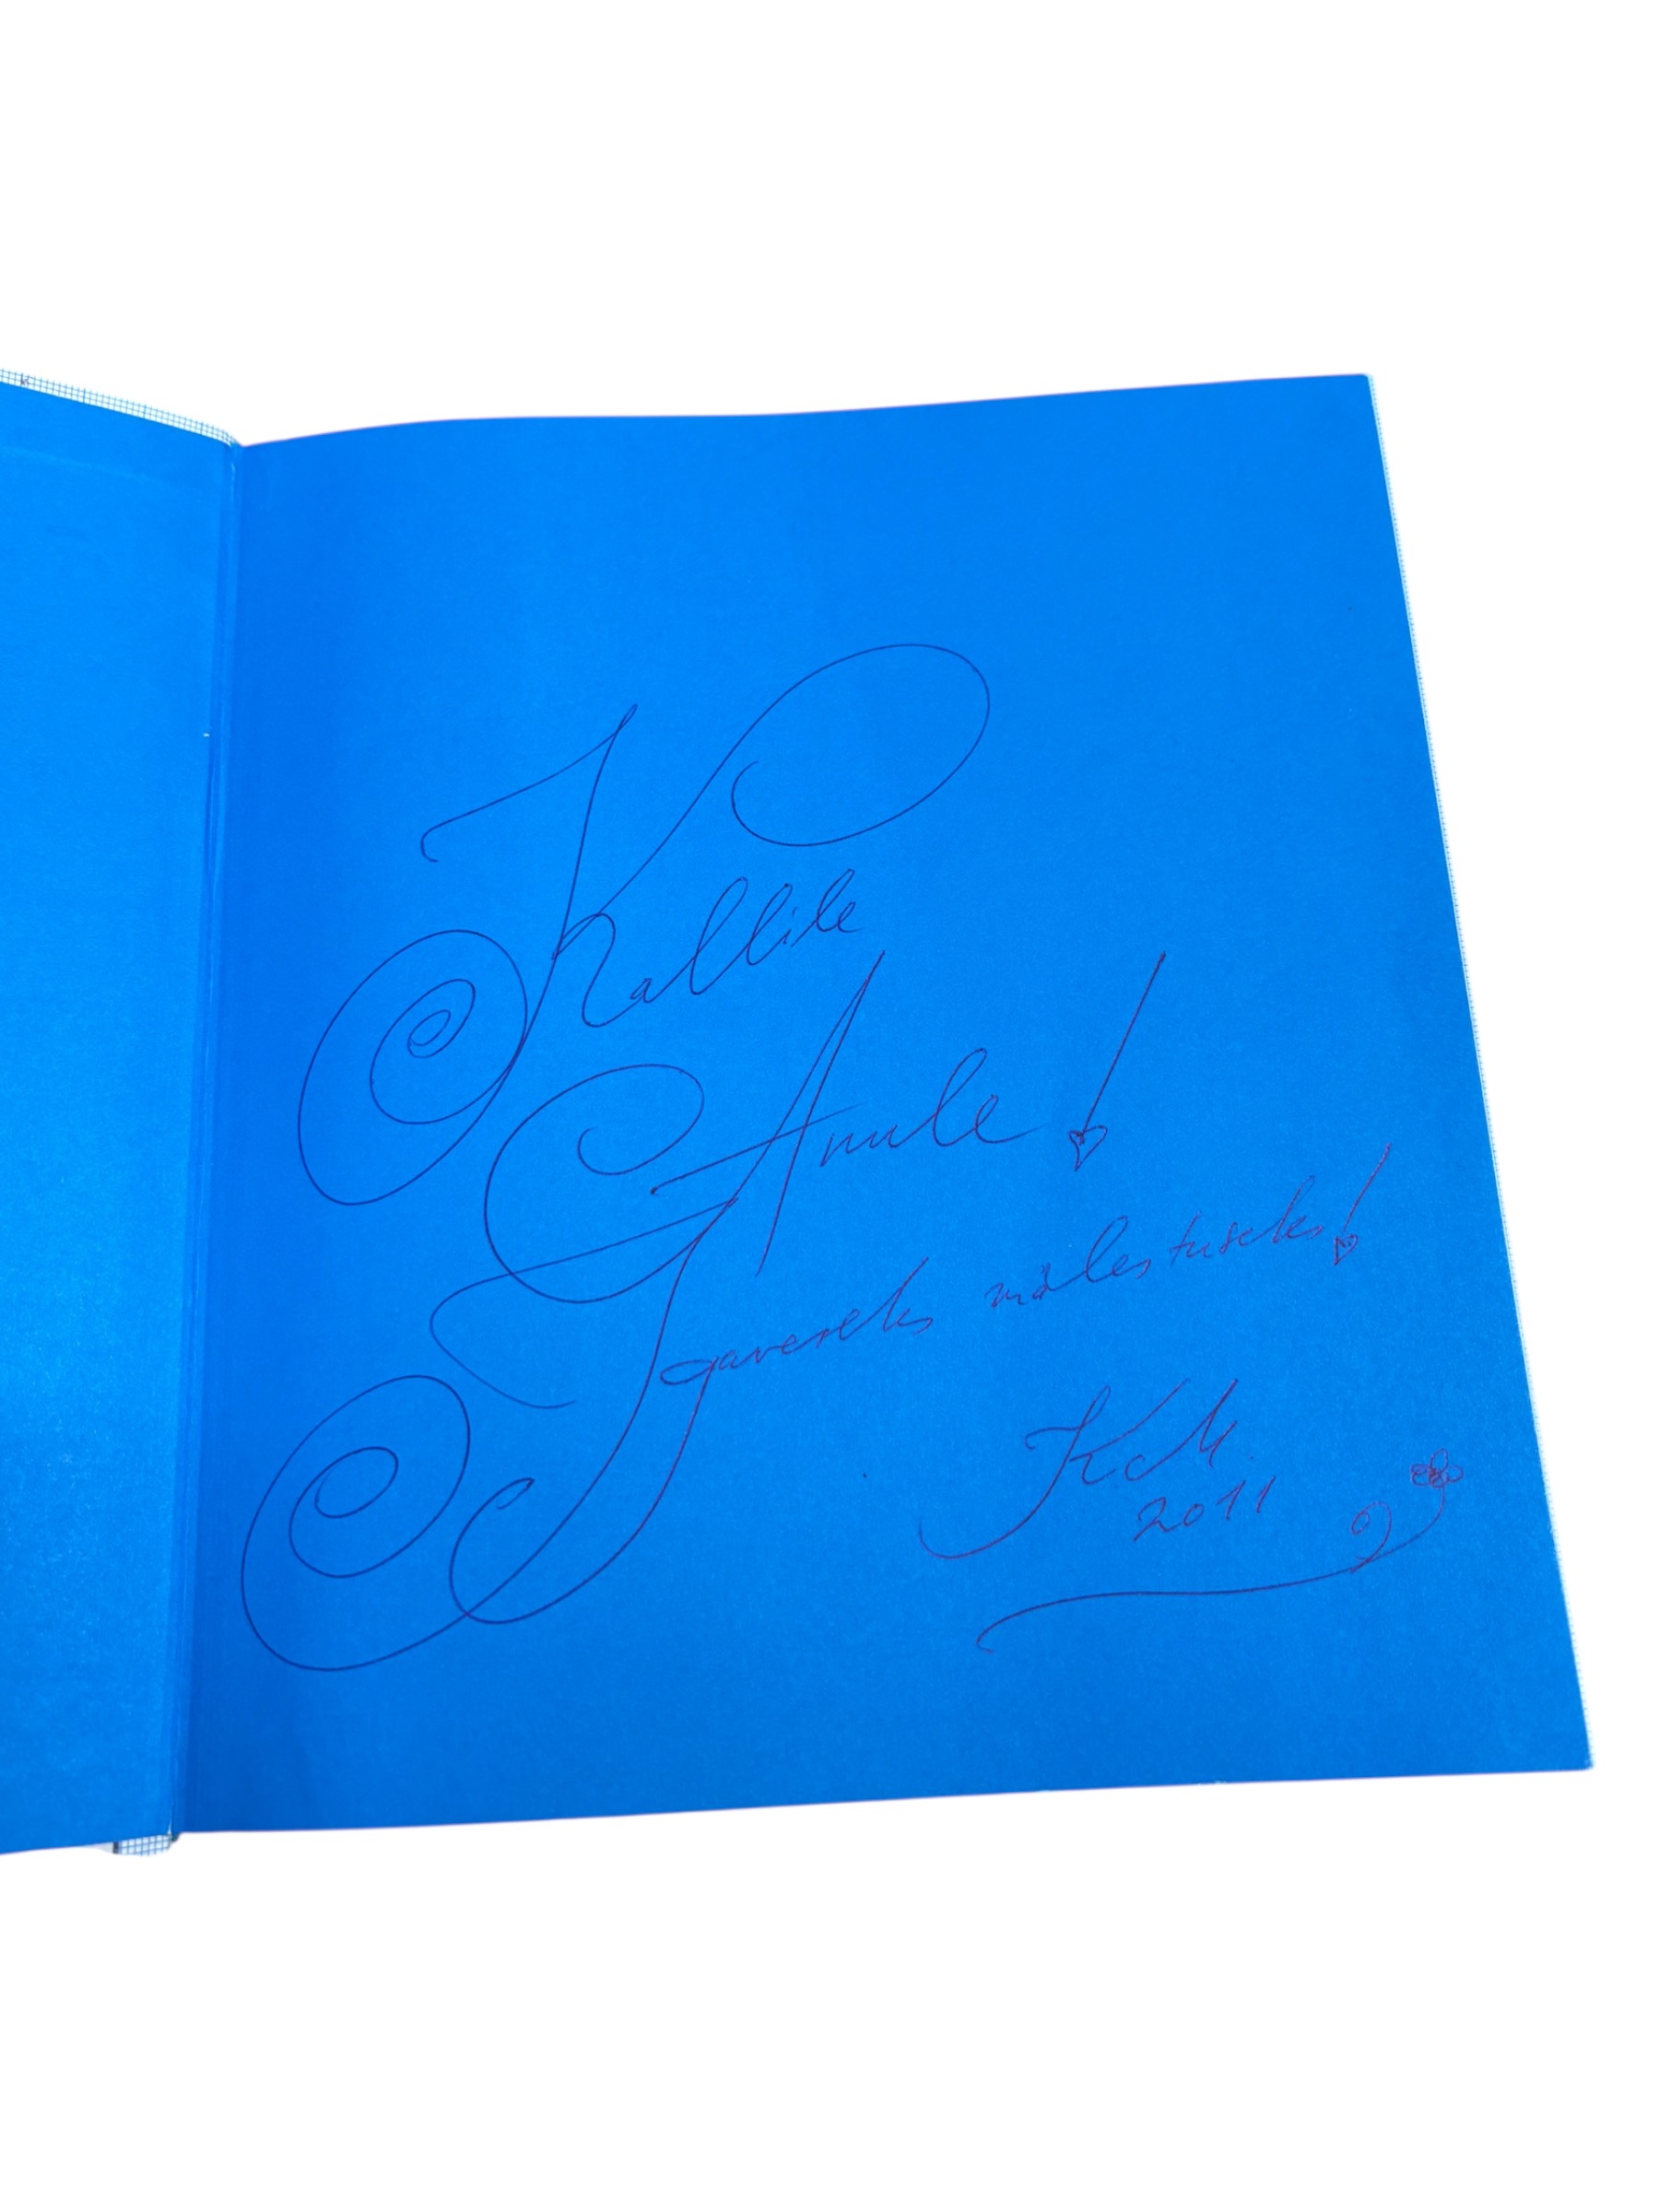 Kallile
Annle!
Igaveseks mälestuseks!
KcM
2011